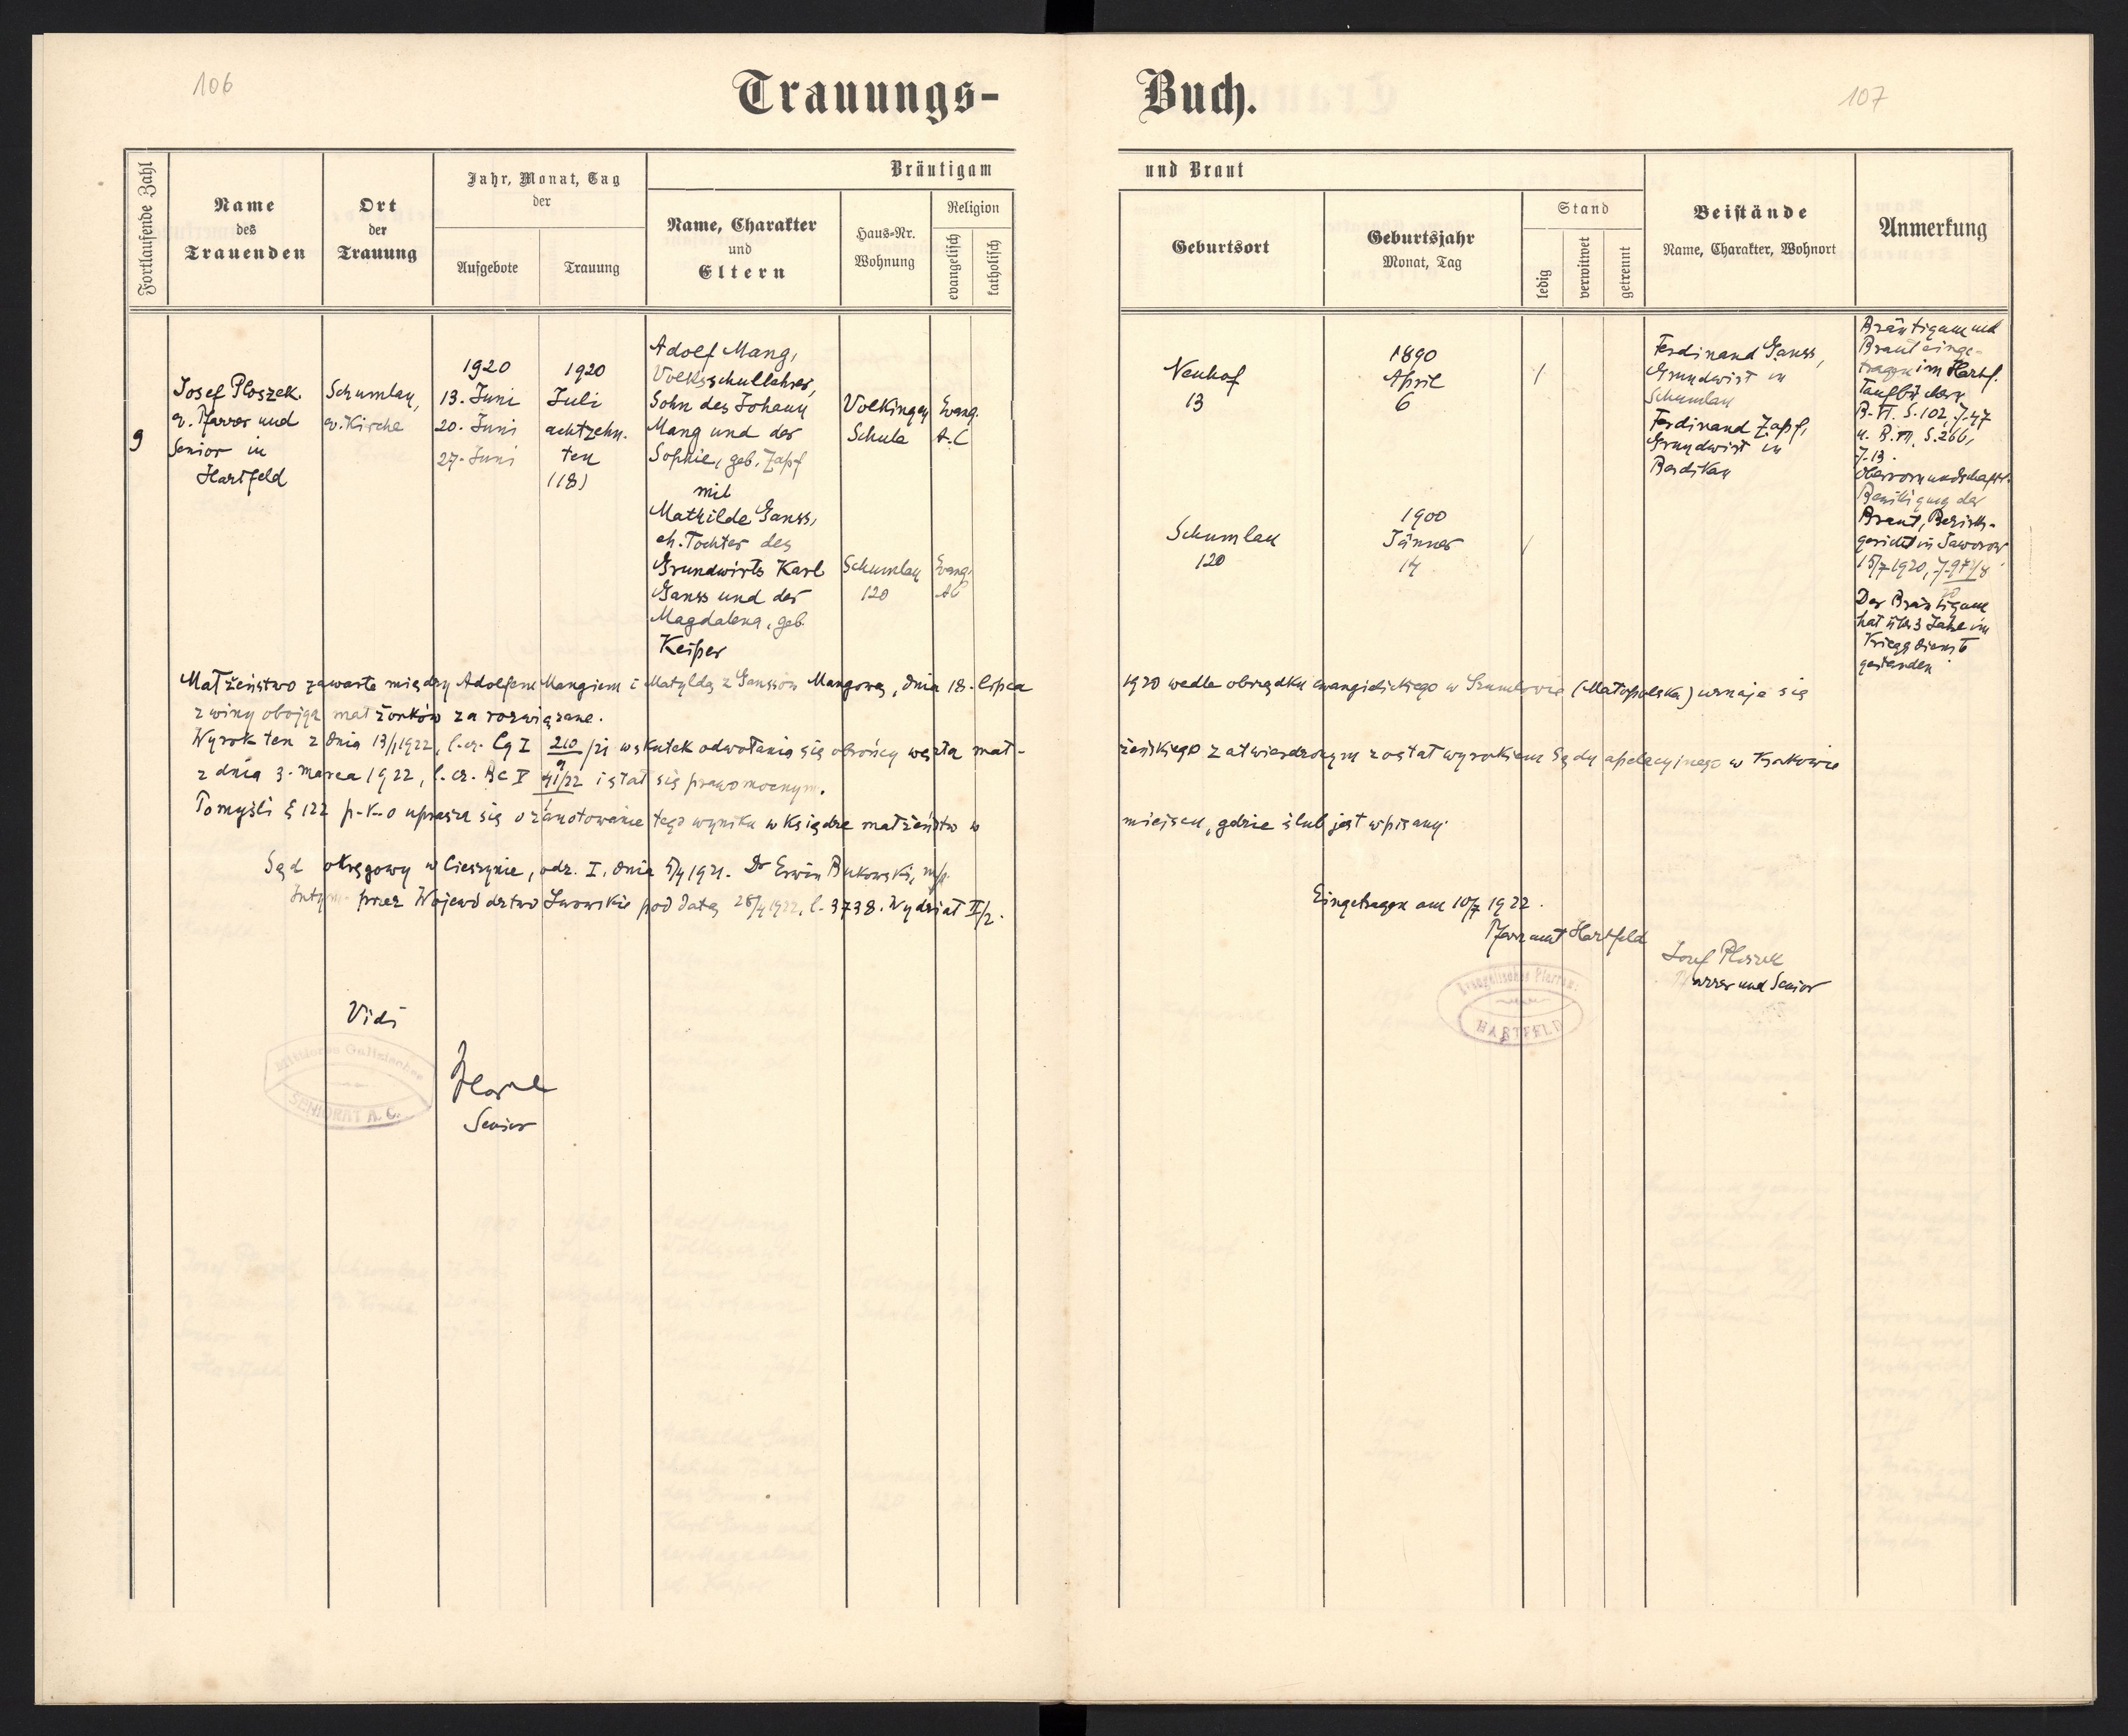 106
107
Trauungs-Buch.
Fortlaufende Zahl
Name
des
Trauenden
Ort
der
Trauung
Jahr, Monat, Tag
der
Aufgebote
Trauung
Bräutigam
und Braut
Name, Charakter
und
Eltern
Haus-Nr.
Wohnung
Religion
evangelisch
katholisch
Geburtsort
Geburtsjahr
Monat, Tag
Stand
ledig
verwitwet
getrennt
Beistände
Name, Charakter, Wohnort
Anmerkung
9
Josef Ploszek.
ev. Pfarrer und
Senior in
Hartfeld
Schumlau,
ev. Kirche
1920
13. Juni
20. Juni
27. Juni
1920
Juli
achtzehn-
ten
(18)
Adolf Mang,
Volksschullehrer,
Sohn des Johann
Mang und der
Sophie, geb. Zapf
mit
Mathilde Ganss,
eh. Tochter des
Grundwirts Karl
Ganss und der
Magdalena, geb.
Keiper
Volkingen
Schule
Evang.
A. C
Schumlau
120
Evang.
AC
Neuhof
13
1890
April
6
/
Schumlau
120
1900
Jänner
14
/
Ferdinand Ganss,
Grundwirt in
Schumlau
Ferdinand Zapf,
Grundwirt in
Berdikau
Bräutigam und
Braut einge-
tragen im Hartf.
Taufbücher
B. VI. S. 102, J. 47
u. B. VII. S. 266,
J. 13.
Obervormundschaftl.
Bewilligung der
Braut, Bezirks-
gericht in Jaworow
15/7 1920,
Der Bräutigam
hat über 3 Jahre im
Kriegsdienste
gestanden
Małżeństwo zawarte między Adolfem Mangiem i Matyldą z Ganssów Mangową, dnia 18. lipca 1920 wedle obrządku ewangielickiego w Szumlowie (Małopolska) uznaje się
z winy obojga małżonków za rozwiązane.
Wyrok ten z dnia 13/1 1922, l. cz. Cg I 210/21 wskutek odwołania się obrońcy węzła mał- żeńskiego zatwierdzonym został wyrokiem Sądu apelacyjnego w Krakowie
z dnia 3. marca 1922, l. cz. Bc V 41/22 i stał się prawomocnym.
Po myśli § 122 p. k. o uprasza się o zanotowanie tego wyniku w Księdze małżeństw w miejscu, gdzie ślub jest wpisany.
Sąd okręgowy w Cieszynie, odz. I, dnia 5/4 1921. Dr Erwin Bukowski, m/p.
Intym. przez Województwo Lwowskie pod datą 28/4 1922, l. 3738. Wydział II/2.
Eingetragen am 10/7 1922.
Pfarramt Hartfeld
Josef Ploszek
Pfarrer und Senior
Evangelisches Pfarramt
HARTFELD
Vidi
Mittleres Galizisches
SENIORAT A. C.
Senior